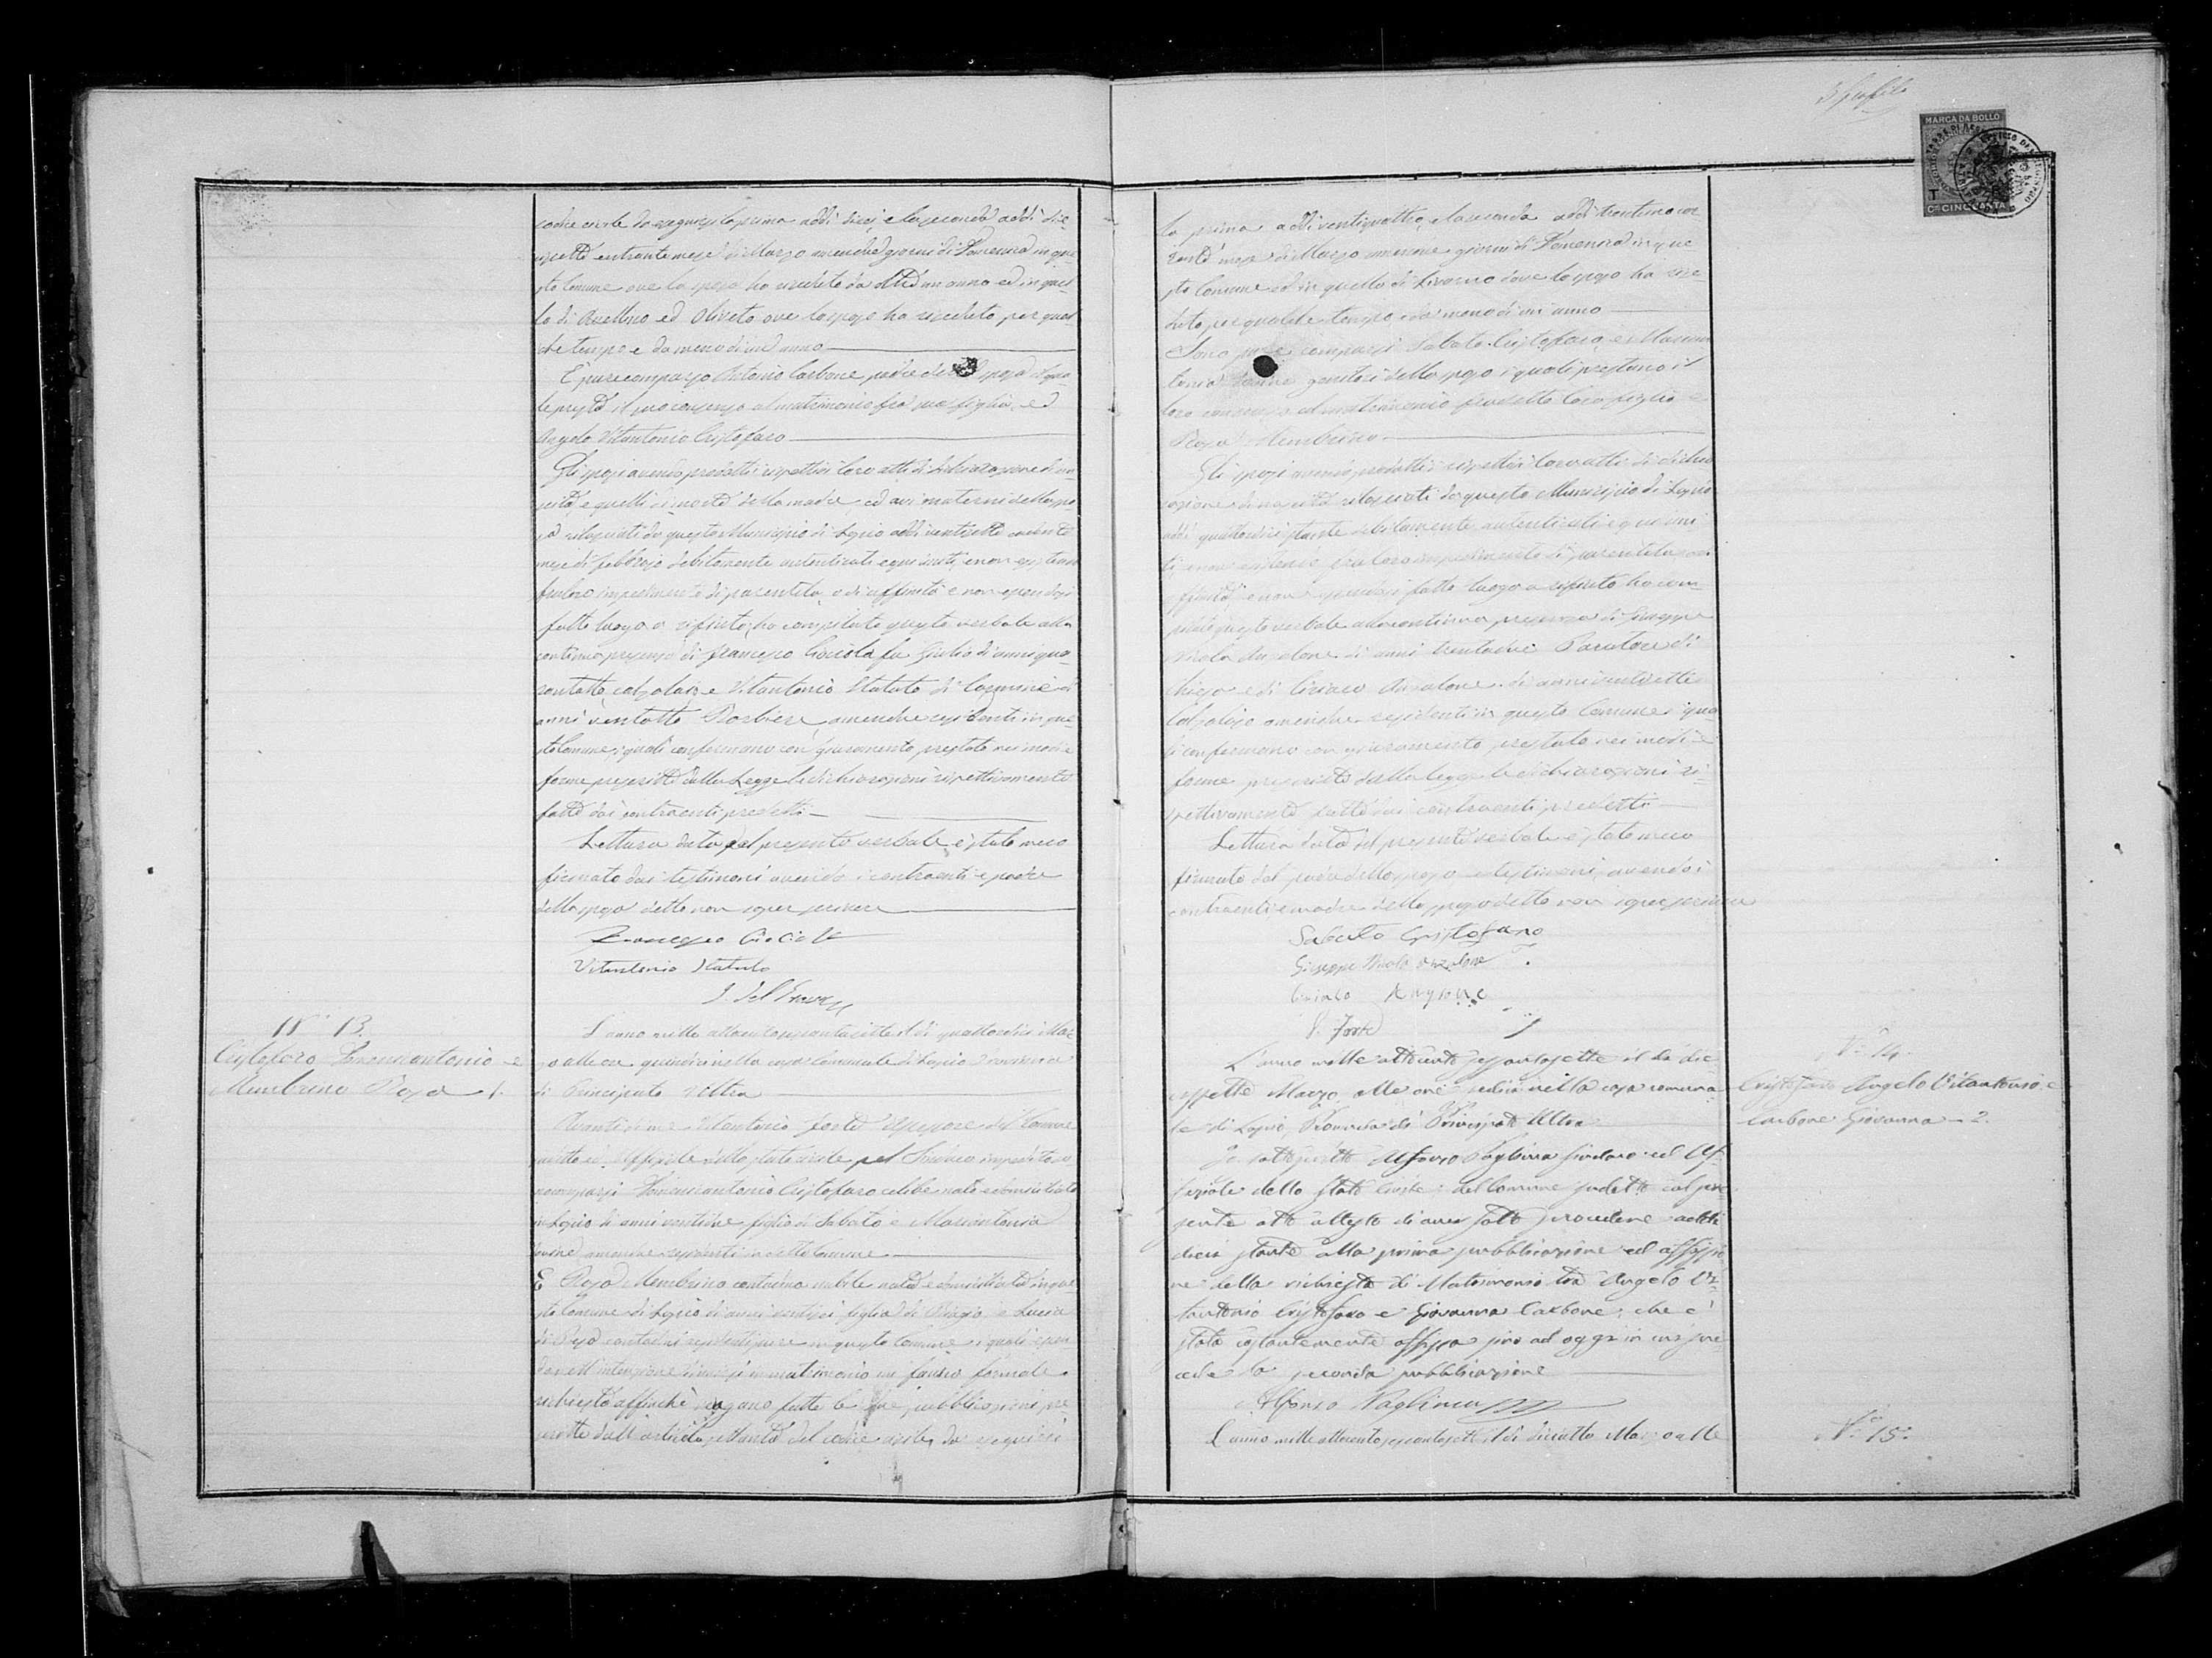 codice civile da eseguirsi la prima addì dieci, e la seconda addì die-
cisette entrante mese di Marzo amendue giorni di Domenica in que-
sto Comune ove la sposa ha risieduto da oltre un anno ed in quel-
lo di Avellino ed Oliveto ove lo sposo ha risieduto per qual-
che tempo e da meno di un anno
È pure comparso Antonio Carbone padre della sposa il qua-
le presta il suo consenso al matrimonio fra sua figlia, ed
Angelo Vitantonio Cristofaro
Gli sposi avendo prodotti i rispettivi loro atti di dichiarazione di na-
scita e quelli di morte della madre, ed avi materni dello spo-
so rilasciati da questo Municipio di Lapio addì ventisette cadente
mese di febbrajo debitamente autenticati e qui uniti, e non esistendo
fra loro impedimento di parentela, o di affinità e non essendosi
fatto luogo a rifiuto, ho compilato questo verbale alla
continua presenza di Francesco Ciociola fu Giulio di anni qua-
rantotto, calzolajo e Vitantonio Statuto di Carmine di
anni ventotto Barbiere, amendue residenti in que-
sto Comune, i quali confermano con giuramento prestato nei modi e
forme prescritte dalla Legge le dichiarazioni rispettivamente
fatte dai contraenti predetti
Lettura data del presente verbale è stato meco
firmato dai testimoni avendo i contraenti e padre
della sposa detto non saper scrivere
Francesco Ciociola
Vitantonio Statuto
N.° 13.
Cristofaro Domenicantonio e
Membrino Rosa 1.
L'anno mille ottocento sessantasette il dì quattordici Mar-
zo alle ore quindici nella casa Comunale di Lapio Provincia
di Principato Ultra
Avanti di me Vitantonio Forte Assessore del Comune
suddetto ed Uffiziale dello stato civile pel Sindaco impedito, so-
no comparsi Domenicantonio Cristofaro celibe nato e domiciliato
in Lapio di anni ventidue figlio di Sabato e Mariantonia
amendue residenti in detto Comune
E Rosa Membrino contadina nubile nata e domiciliata in que-
sto Comune di Lapio di anni ventisei figlia di Biagio e Lucia
contadini residenti pure in questo Comune i quali essen-
do nell'intenzione di unirsi in matrimonio mi fanno formale
richiesta affinchè vengano fatte le due pubblicazioni pre-
scritte dall'articolo settanta del codice civile, da eseguirsi
la prima addì ventiquattro, e la seconda addì trentuno cor-
rente mese di Marzo amendue giorni di Domenica in que-
sto Comune ed in quello di Livorno dove lo sposo ha risie-
duto per qualche tempo e da meno di un anno
Sono pure comparsi Sabato Cristofaro, e Marian-
tonia genitori dello sposo i quali prestano il
loro consenso al matrimonio fra detto loro figlio e
Rosa Membrino
Gli sposi avendo prodotti i rispettivi loro atti di dichia-
razione di nascita rilasciati da questo Municipio di Lapio
addì quattordici stante debitamente autenticati e qui uni-
ti e non esistendo fra loro impedimento di parentela, o di
affinità, e non essendosi fatto luogo a rifiuto ho com-
pilato questo verbale alla continua presenza di Giuseppe
Nicola Anzalone di anni trentadue Paratore di
Chiesa e di Ciriaco Anzalone di anni ventisette
Calzolajo amendue residenti in questo Comune i qua-
li confermano con giuramento prestato nei modi e
forme prescritte dalla legge le dichiarazioni ri-
spettivamente fatte dai contraenti predetti
Lettura data del presente verbale è stato meco
firmato dal padre dello sposo e testimoni, avendo i
contraenti e madre dello sposo detto non saper scrivere
Sabato Cristofaro
Giuseppe Nicola Anzalone
Ciriaco Anzalone
V. Forte
L'anno mille ottocento sessantasette il dì die-
cissette Marzo, alle ore sedici nella casa comuna-
le di Lapio, Provincia di Principato Ultra
Io sottoscritto Alfonso Vaglivieri Sindaco ed Uf-
feziale dello Stato Civile del Comune sudetto col pre-
sente atto attesto di aver fatto procedere addì
dieci stante alla prima pubblicazione ed affissio-
ne della richiesta di Matrimonio tra Angelo Vi-
tantonio Cristofaro e Giovanna Carbone; che è
stata costantemente affissa sino ad oggi in cui suc-
cede la seconda pubblicazione
Alfonso
N.° 14
Cristofaro Angelo Vitantonio, e
Carbone Giovanna - 2.
L'anno mille ottocento sessantasette il dì diciotto Marzo alle
N.° 15.
MARCA DA BOLLO
C.MI CINQUANTA